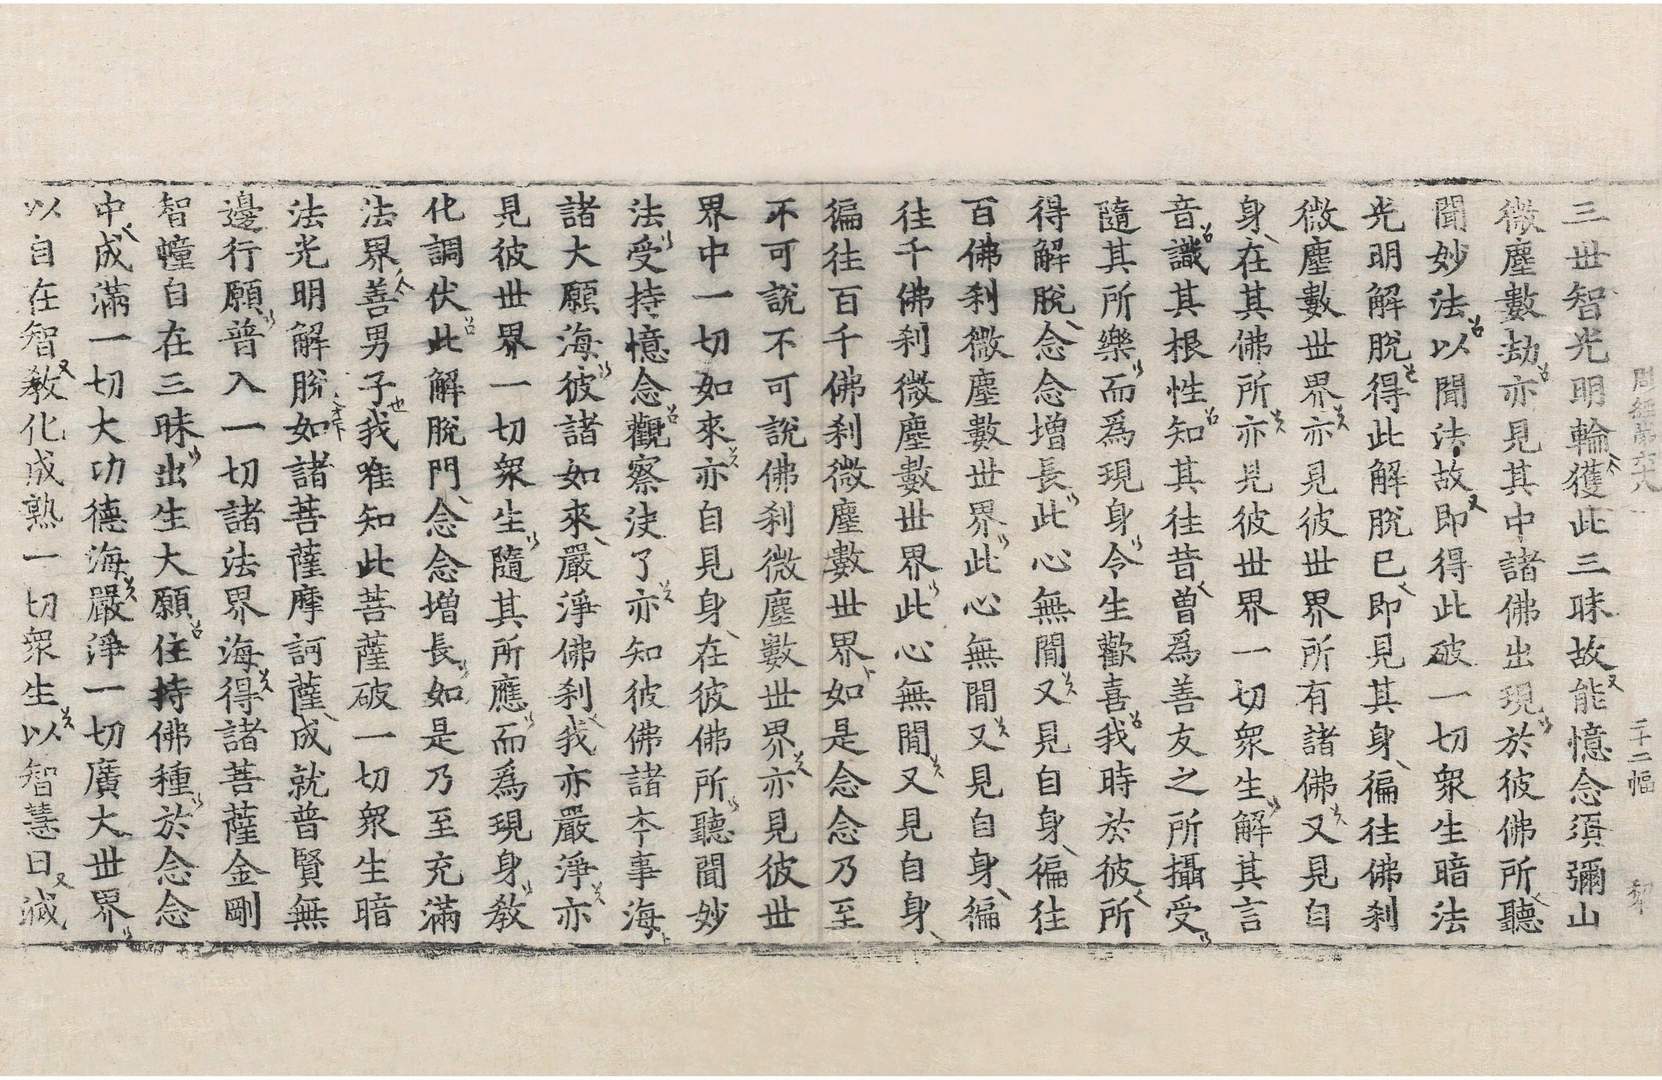 周經第六
幅
三世智光明輪獲此三昧故能憶念須彌山
微塵數劫亦見其中諸佛出現於彼佛所聽
聞妙法以聞法故即得此破一切衆生暗法
光明解脫得此解脫已即見其身徧往佛刹
微塵數世界亦見彼世界所有諸佛又見自
身在其佛所亦見彼世界一切衆生解其言
音識其根性知其往昔曾爲善友之所攝受
隨其所樂而爲現身令生歡喜我時於彼所
得解脫念念增長此心無閒又見自身徧往
百佛刹微塵數世界此心無閒又見自身徧
往千佛刹微塵數世界此心無閒又見自身
徧往百千佛刹微塵數世界如是念念乃至
不可說不可說佛刹微塵數世界亦見彼世
界中一切如來亦自見身在彼佛所聽聞妙
法受持憶念觀察決了亦知彼佛諸本事海
諸大願海彼諸如來嚴淨佛刹我亦嚴淨亦
見彼世界一切衆生隨其所應而爲現身教
化調伏此解脫門念念增長如是乃至充滿
法界善男子我唯知此菩薩破一切衆生暗
法光明解脫如諸菩薩摩訶薩成就普賢無
邊行願普入一切諸法界海得諸菩薩金剛
智幢自在三昧出生大願住持佛種於念念
中成滿一切大功德海嚴淨一切廣大世界
以自在智教化成熟一切衆生以智慧日滅